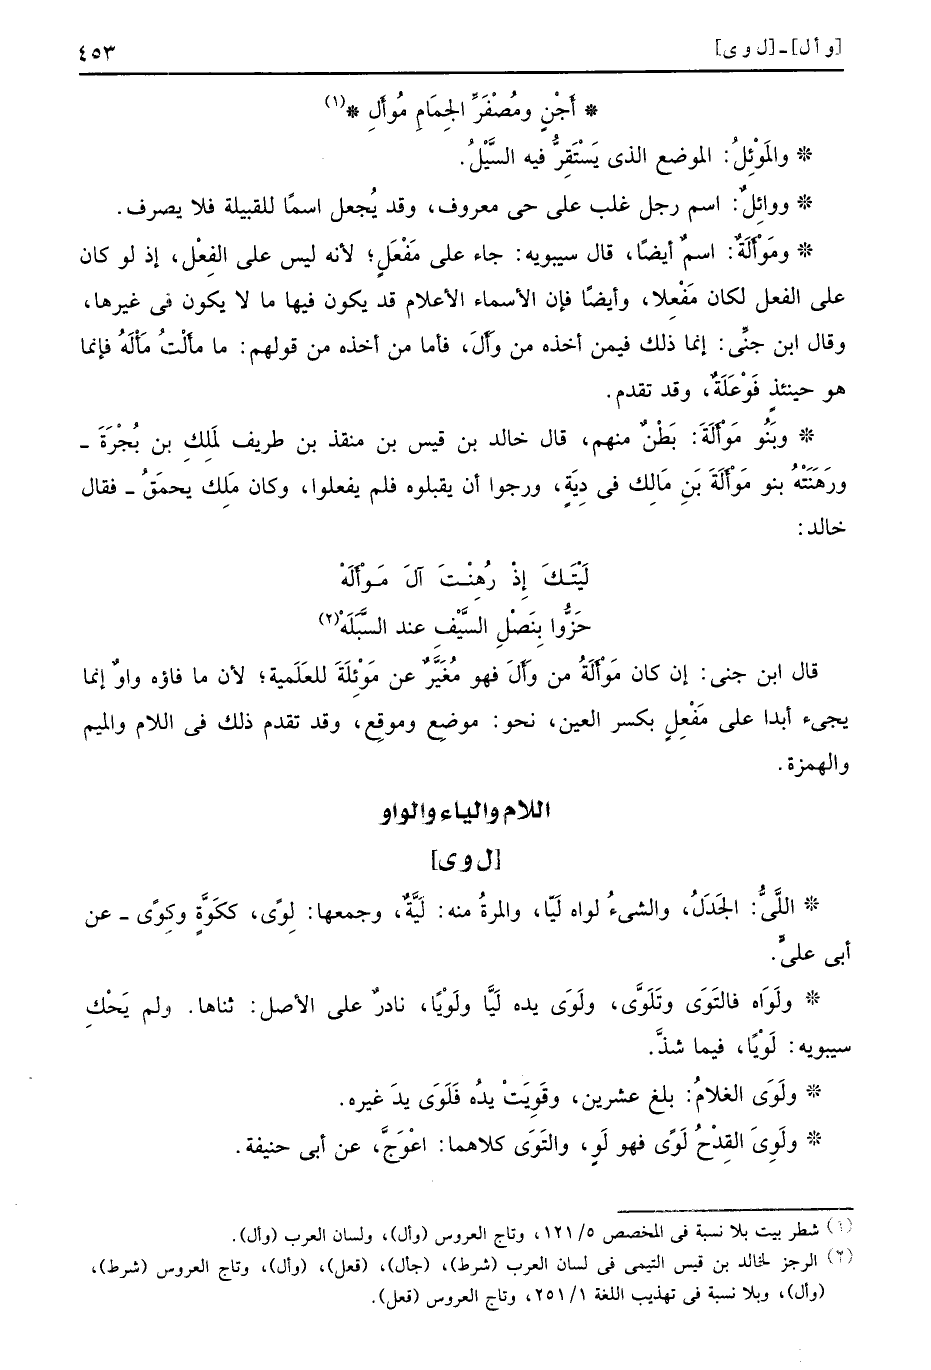 [و أ ل] - [ل و ى]
٤٥٣
* أَجْنٍ ومُصْفَرِّ الجِمَامِ مُوأَلِ *(١)
* والمَوْئِلُ: الموضع الذى يَسْتَقِرُّ فيه السَّيْلُ.
* ووائِلٌ: اسم رجل غلب على حى معروف، وقد يُجعل اسمًا للقبيلة فلا يصرف.
* ومَوْأَلَةٌ: اسمٌ أيضًا، قال سيبويه: جاء على مَفْعَلٍ؛ لأنه ليس على الفِعْل، إذ لو كان
على الفعل لكان مَفْعِلا، وأيضًا فإن الأسماء الأعلام قد يكون فيها ما لا يكون فى غيرها،
وقال ابن جنِّى: إنما ذلك فيمن أخذه من وَأَلَ، فأما من أخذه من قولهم: ما مألْتُ مَأْلَهُ فإنما
هو حينئذٍ فَوْعَلَةٌ، وقد تقدم.
* وبَنُو مَوْأَلَةَ: بَطْنٌ منهم، قال خالد بن قيس بن منقذ بن طريف لمَلِكِ بن بُجْرَةَ ـ
ورَهَنَتْهُ بنو مَوْأَلَةَ بَنِ مَالِك فى دِيَةٍ، ورجوا أن يقبلوه فلم يفعلوا، وكان مَلِك يحمقُ ـ فقال
خالد:
لَيْتَـكَ إِذْ رُهِنْـتَ آلَ مَـوْأَلَهْ
حَزُّوا بِنَصْلِ السَّيْفِ عند السَّبَلَهْ(٢)
قال ابن جنى: إن كان مَوْأَلَةُ من وَأَلَ فهو مُغَيَّرٌ عن مَوْئِلَةَ للعَلَمية؛ لأن ما فاؤه واوٌ إنما
يجىء أبدا على مَفْعِلٍ بكسر العين، نحو: موضِع وموقِع، وقد تقدم ذلك فى اللام والميم
والهمزة.
اللام والياء والواو
[ل و ى]
* اللَّىُّ: الجَدَلُ، والشىءُ لواه لَيّا، والمرةُ منه: لَيَّةٌ، وجمعها: لِوًى، ككَوَّةٍ وكِوًى ـ عن
أبى علىٍّ.
* ولَوَاه فالتَوَى وتَلَوَّى، ولَوَى يده لَيًّا ولَوْيًا، نادرٌ على الأصل: ثناها. ولم يَحْكِ
سيبويه: لَوْيًا، فيما شذَّ.
* ولَوَى الغلامُ: بلغ عشرين، وقَوِيَتْ يدُه فَلَوَى يدَ غيره.
* ولَوِىَ القِدْحُ لَوًى فهو لَوٍ، والتَوَى كلاهما: اعْوَجَّ، عن أبى حنيفة.
(١) شطر بيت بلا نسبة فى المخصص ١٢١/٥، وتاج العروس (وأل)، ولسان العرب (وأل).
(٢) الرجز لخالد بن قيس التيمى فى لسان العرب (شرط)، (جأل)، (قعل)، (وأل)، وتاج العروس (شرط)،
(وأل)، وبلا نسبة فى تهذيب اللغة ٢٥١/١، وتاج العروس (قعل).